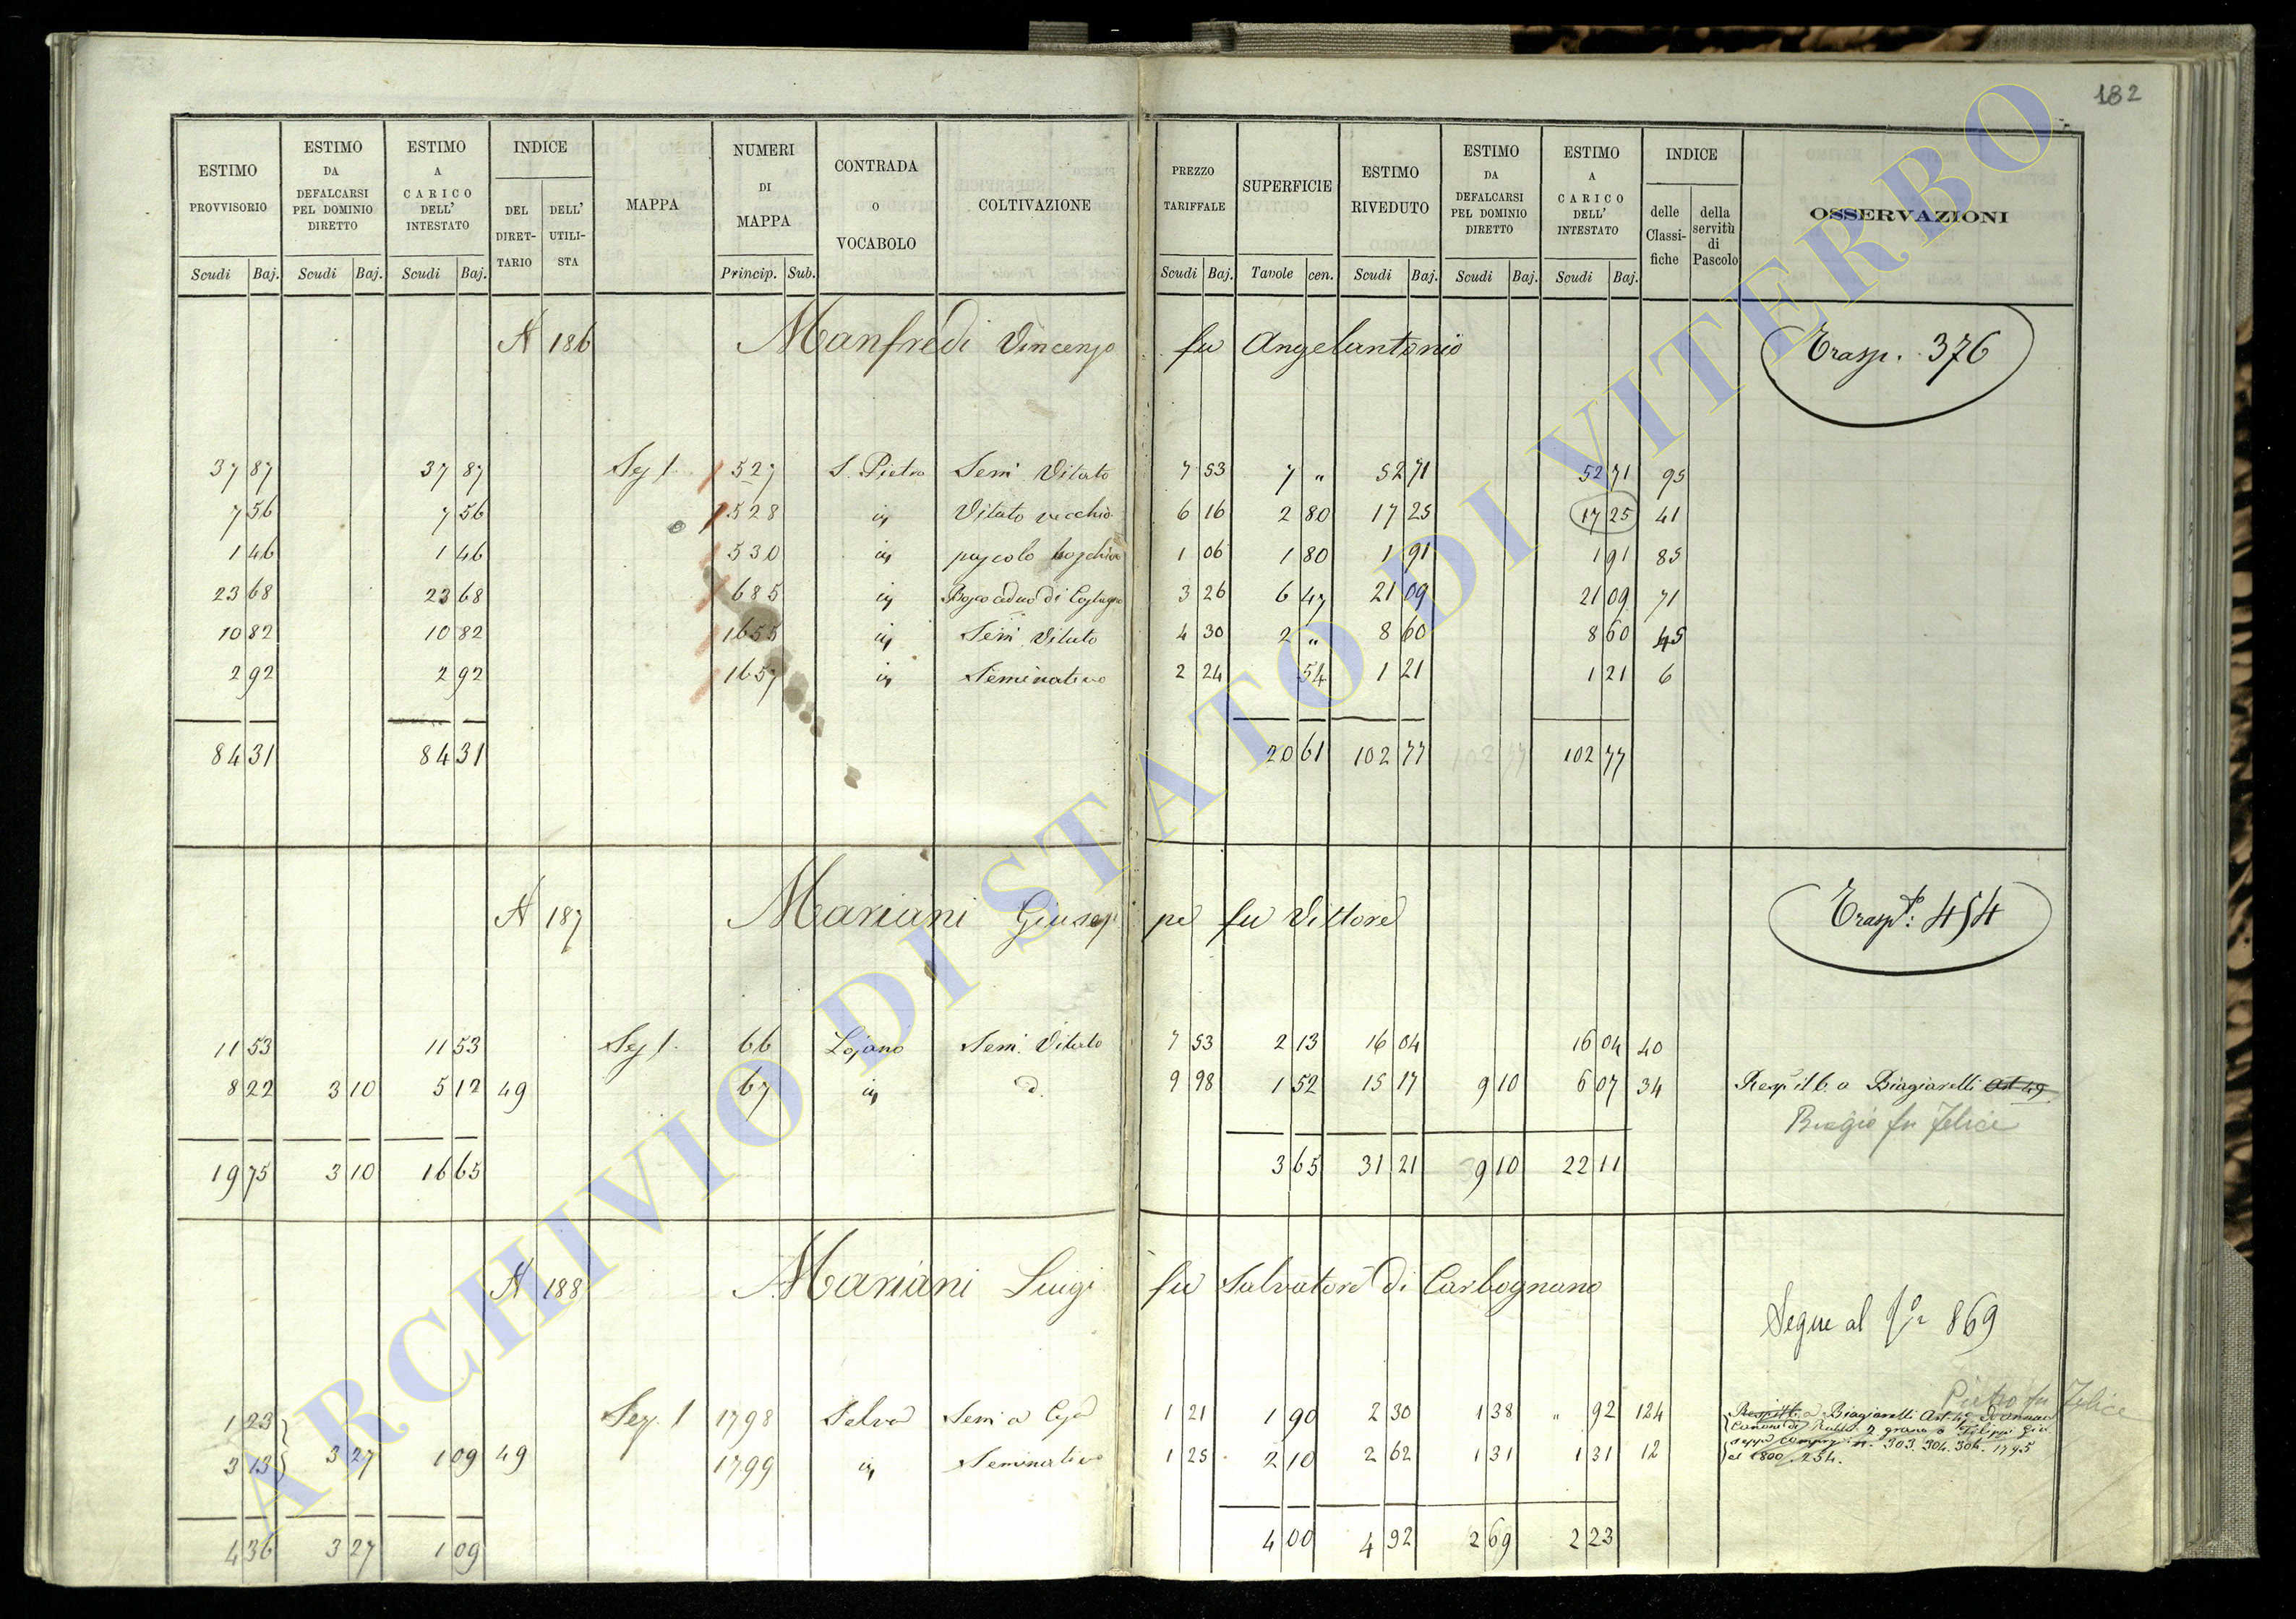 182
ESTIMO PROVVISORIO Scudi Baj. | ESTIMO DA DEFALCARSI PEL DOMINIO DIRETTO Scudi Baj. | ESTIMO A CARICO DELL' INTESTATO Scudi Baj. | INDICE DEL DIRET-TARIO | DELL' UTILI-STA | MAPPA | NUMERI DI MAPPA Princip. Sub. | CONTRADA O VOCABOLO | COLTIVAZIONE | PREZZO TARIFFALE Scudi Baj. | SUPERFICIE Tavole cen. | ESTIMO RIVEDUTO Scudi Baj. | ESTIMO DA DEFALCARSI PEL DOMINIO DIRETTO Scudi Baj. | ESTIMO A CARICO DELL' INTESTATO Scudi Baj. | INDICE delle Classi-fiche | della servitù di Pascolo | OSSERVAZIONI
186 Manfredi Vincenzo fu Angelantonio Trasp. 376
37 87 37 87 Sez 1. 527 S. Pietro Sem Vitato 7 53 7 " 52 71 52 71 95
7 56 7 56 528 Vitato vecchio 6 16 2 80 17 25 17 25 41
1 46 1 46 530 pascolo 1 06 1 80 1 91 1 91 85
23 68 23 68 685 Bosco ceduo di Castagno 3 26 6 47 21 09 21 09 71
10 82 10 82 1655 Sem Vitato 4 30 2 " 8 60 8 60 45
2 92 2 92 1657 Seminativo 2 24 54 1 21 1 21 6
84 31 84 31 20 61 102 77 102 77 102 77
187 Mariani Giuseppe fu Vittore Trasp: 454
11 53 11 53 Sez 1. 66 Lojano Sem. Vitato 7 53 2 13 16 04 16 04 40
8 22 3 10 5 12 49 67 d. 9 98 1 52 15 17 9 10 6 07 34 a Biagiarelli Art 49
Biagio fu Felice
19 75 3 10 16 65 3 65 31 21 9 10 22 11
188 Mariani Luigi fu Salvatore di Carbognano
Segue al 869
Pietro fu Felice
1 23 Sez. 1 1798 Selva Sem a 1 21 1 90 2 30 1 38 " 92 124 a Biagiarelli Art. 49
Canone di 2 grano a Filippi Giu
3 13 3 27 1 09 49 1799 Seminativo 1 25 2 10 2 62 1 31 1 31 12 n. 303. 304. 1795
al 1800. 254.
4 36 3 27 1 09 4 00 4 92 2 69 2 23
ARCHIVIO DI STATO DI VITERBO